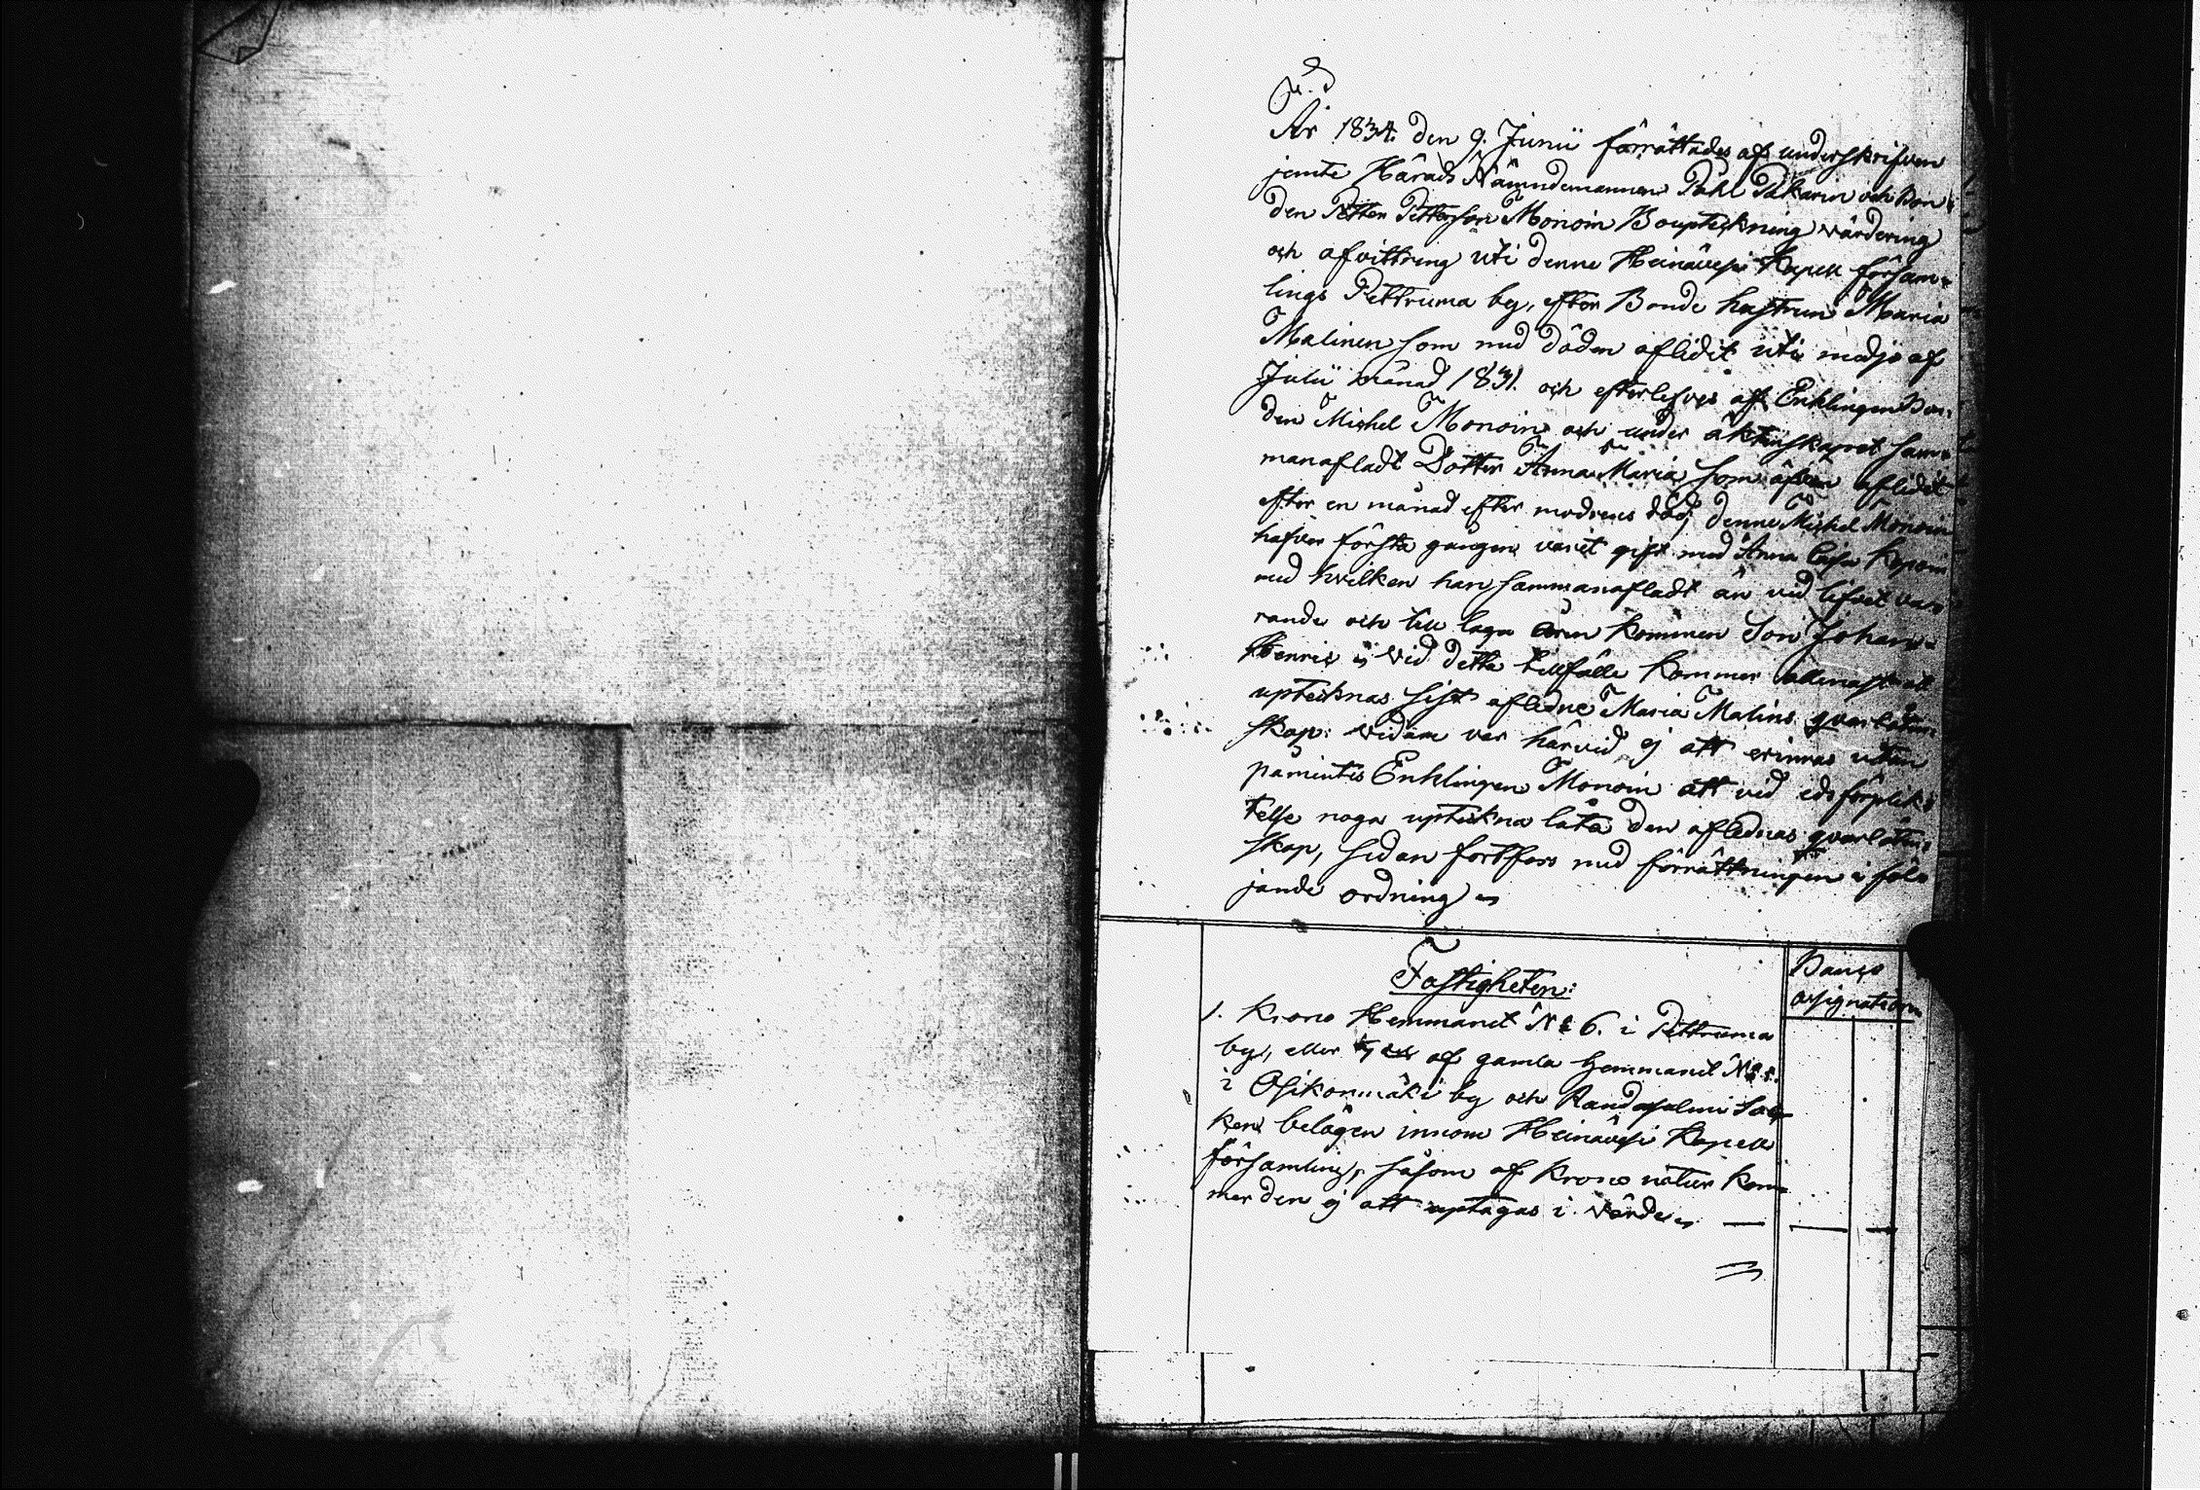 År 1834 den 9. Junii förrättades af underskrifven
jemte Härads Nämndemannen Påhl Pakarin och Bon-
den Petter Pettersson Monoin Boupteckning värdering
och afvittring uti denne Heinävesi Kapell försam-
lings Pettruma by, efter Bonde hustrun Maria
Malinen som med döden aflidit uti medjo af
Julii månad 1831. och efterlefves af Enklingen Bon-
den Michel Monoin och under äktenskapet sam-
manafladt Dotter Anna Maria som äfven aflidit
efter en månad efter modrens död, denne Michel Monoin
hafver första gången varit gift med Anna Caisa
med hvilken han sammanafladt än vid lifvet va-
rande och till laga åren kommen Son Johan
Henric; Vid detta tillfälle kommer allenast att
uptecknas sist aflidne Maria Malins qvarlåten-
skap: vidare var härvid ej att erinras utan
påmintes Enklingen Monoin att vid edsförplik-
telse noga upteckna låta den aflidnas qvarlåten-
skap, sedan fortfors med förrättningen i föl-
jande ordning
Fastigheten:
Banco
assignation
1. Krono Hemmanet N: 6. i Pettruma
by, eller af gamla hemmanet N: 5.
i Osikonmäki by och Randasalmi Soc-
ken belägen innom Heinävesi Kapell
församling, såsom af Krono natur kom-
mer den ej att uptagas i värde